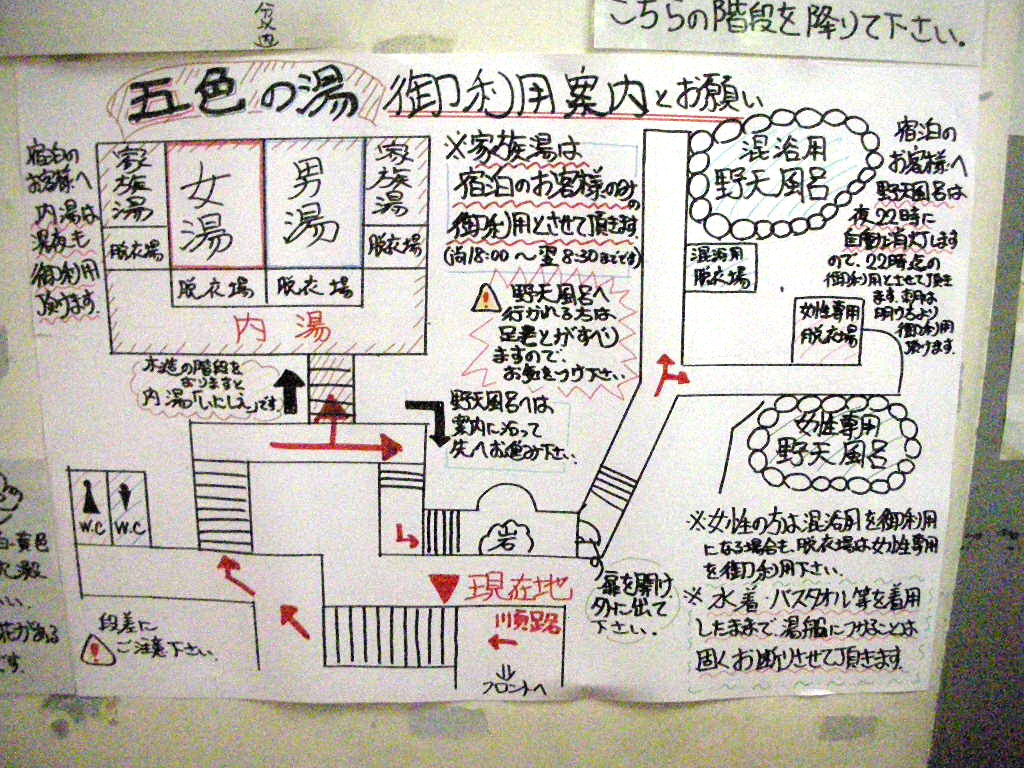 こちらの階段を降りて下さい。
五色の湯 御利用案内とお願い
宿泊の
お客様へ
内湯は
深夜も
御利用
頂けます。
家族湯
女湯
男湯
家族湯
脱衣場
脱衣場
脱衣場
脱衣場
内湯
※家族湯は
宿泊のお客様のみの
御利用とさせて頂きます
(尚18:00〜翌8:30までです)
野天風呂へ
行かれる方は
足もとがすべり
ますので、
お気をつけ下さい。
木造の階段を
おりますと
内湯「いにしえ」です。
野天風呂へは
案内に沿って
先へお進み下さい。
混浴用
野天風呂
混浴用
脱衣場
女性専用
脱衣場
宿泊の
お客様へ
野天風呂は
夜22時に
自動消灯します
ので、22時迄の
御利用とさせて頂き
ます。朝は
明け方より
御利用
頂けます。
女性専用
野天風呂
W.C
W.C
岩
現在地
順路
フロントへ
扉を開け
外に出て
下さい。
段差に
ご注意下さい。
※女性の方は混浴用を御利用
になる場合も、脱衣場は女性専用
を御利用下さい。
※水着・バスタオル等を着用
したままで、湯船につかることは
固くお断りさせて頂きます。
白・黄色
がある
です。